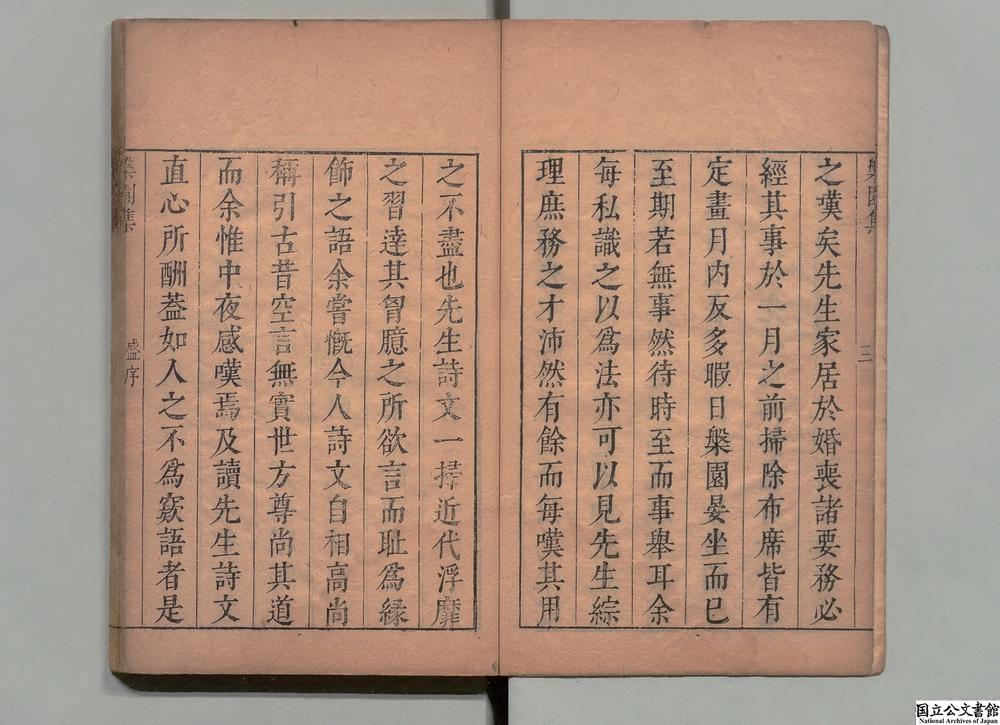 槃園集
三
之嘆矣先生家居於婚喪諸要務必
經其事於一月之前掃除布席皆有
定畫月內反多暇日槃園晏坐而已
至期若無事然待時至而事舉耳余
每私識之以爲法亦可以見先生綜
理庶務之才沛然有餘而每嘆其用
之不盡也先生詩文一掃近代浮靡
之習達其胷臆之所欲言而耻爲緣
飾之語余嘗慨今人詩文自相高尚
稱引古昔空言無實世方尊尚其道
而余惟中夜感嘆焉及讀先生詩文
直心所酬葢如人之不爲窽語者是
槃園集
盛序
国立公文書館
National Archives of Japan